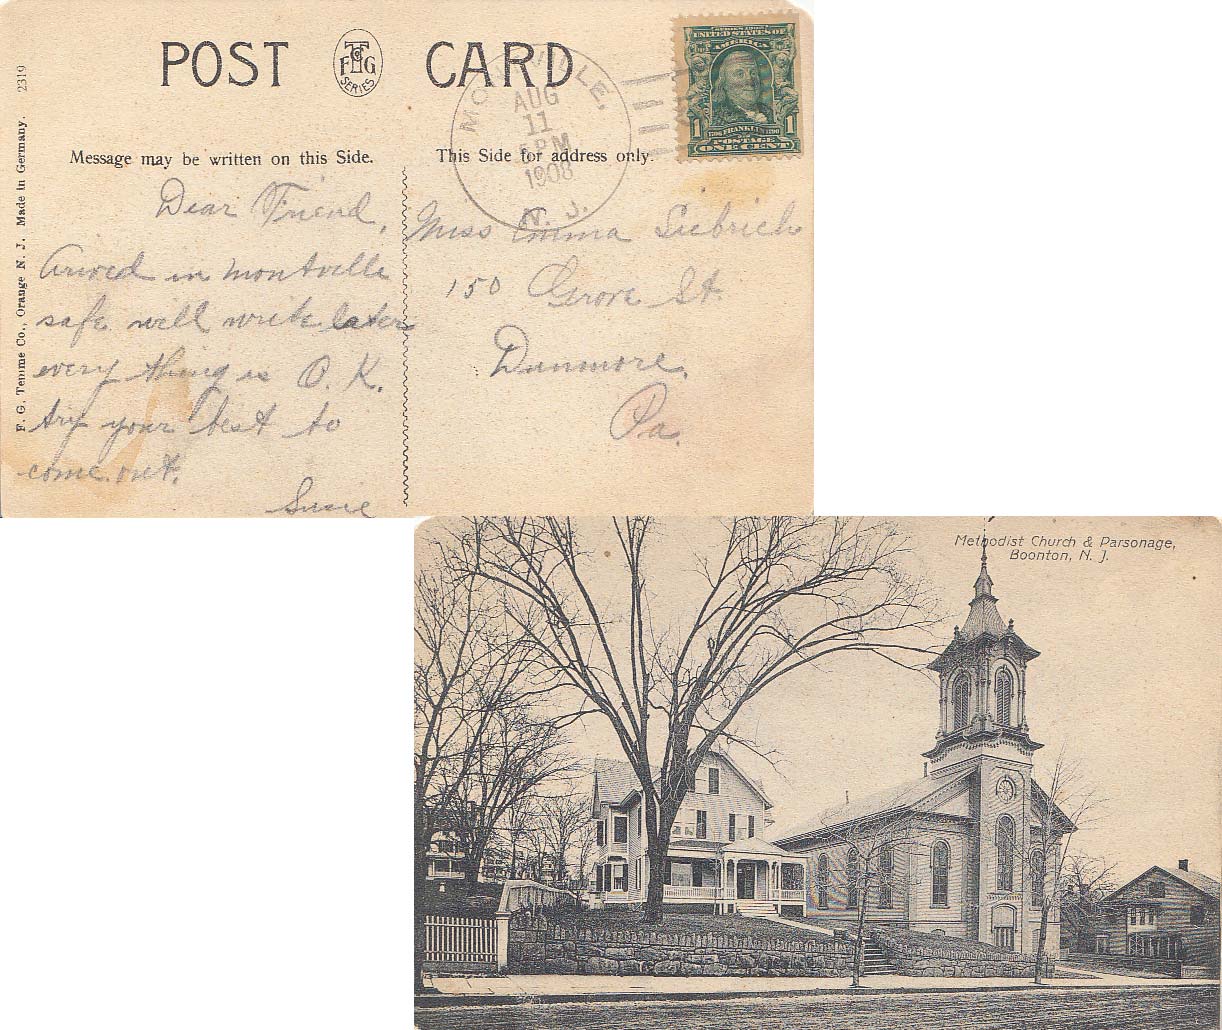 POST CARD
F T Co G
SERIES
MONTVILLE,
AUG
11
5 PM
1908
N. J.
UNITED STATES OF
AMERICA
1 FRANKLIN 1
POSTAGE
ONE CENT
Message may be written on this Side.
This Side for address only.
F. G. Temme Co., Orange N. J. Made in Germany. 2319
Dear Friend,
Arived in Montville
safe will write later
every thing is O. K.
try your best to
come out.
Susie
Miss Emma Siebrich
150 Grove St.
Dunmore,
Pa.
Methodist Church & Parsonage,
Boonton, N. J.